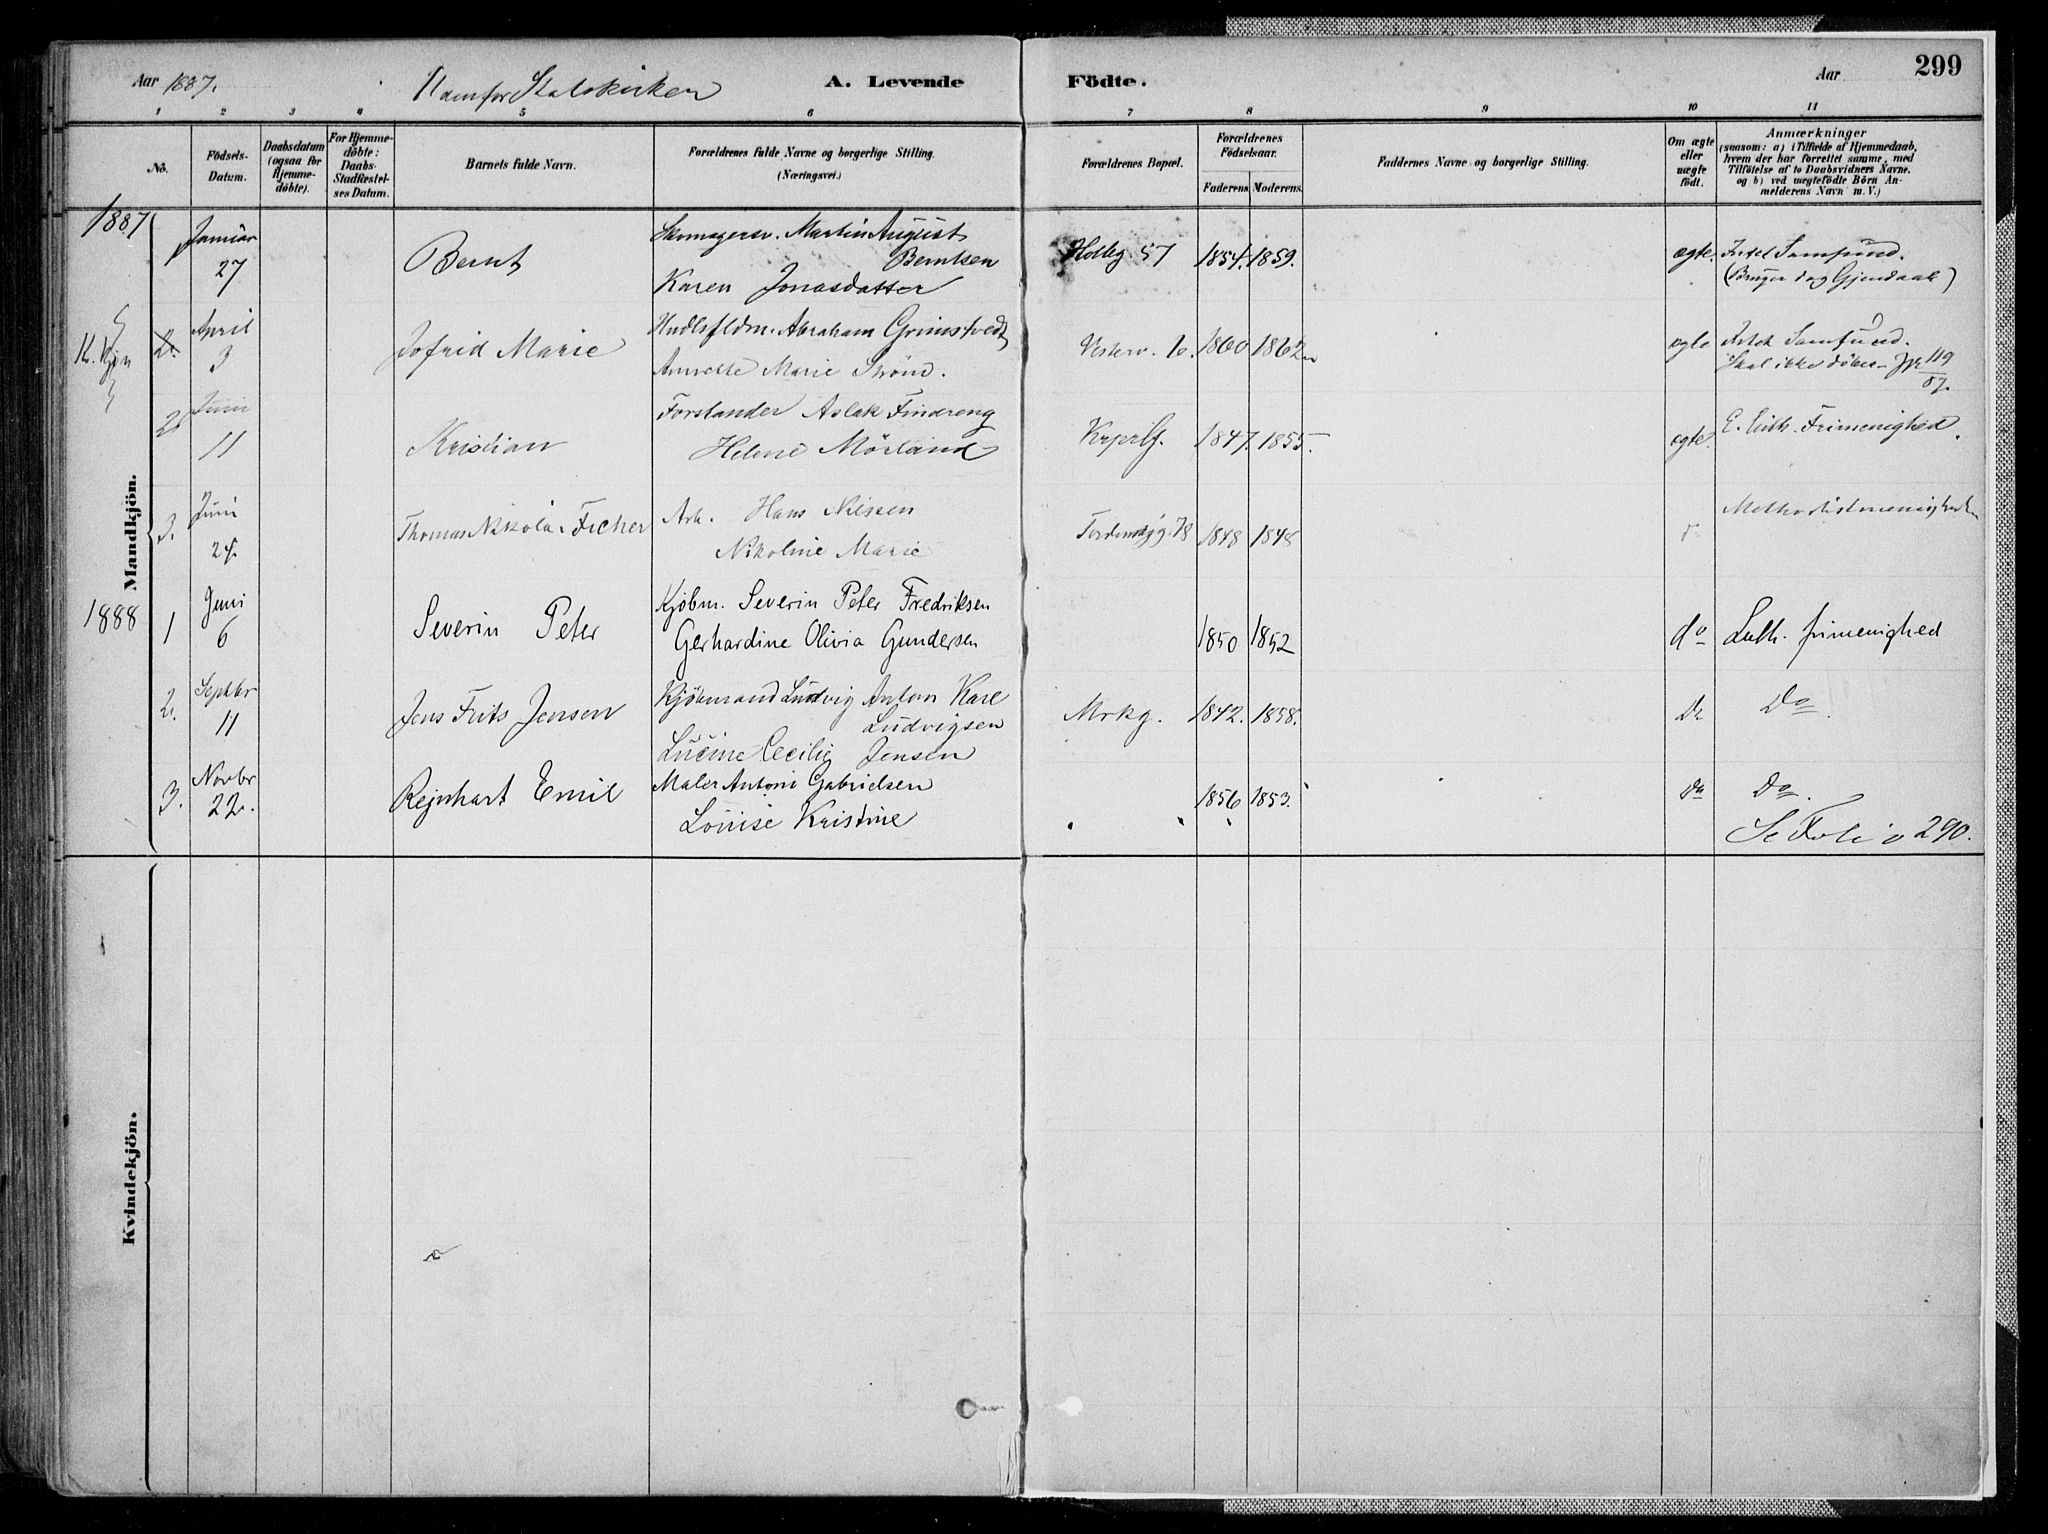 Aar 1887. Udenfor Statskirken A. Levende Födte. Aar 299
1 2 3 4 5 6 7 8 9 10 11
No.
Födsels-Datum.
Daabsdatum (ogsaa for Hjemme-döbte).
For Hjemme-döbte: Daabs-Stadfæstelses Datum.
Barnets fulde Navn.
Forældrenes fulde Navne og borgerlige Stilling. (Næringsvei.)
Forældrenes Bopæl.
Forældrenes Födselsaar.
Faderens. Moderens.
Faddernes Navne og borgerlige Stilling.
Om ægte eller uægte födt.
Anmærkninger
(saasom: a) i Tilfælde af Hjemmedaab,
hvem der har forrettet samme, med
Tilföielse af to Daabsvidners Navne.
og b) ved uægtefödte Börn An-
melderens Navn m. V.)
Mandkjön.
1887
Januar 27 Bernt Skomagersv. Martin August Berntsen
Karen Jonasdatter
Holbg. 57 1854. 1859. ægte. Intet Samfund.
K. Kjøn
2. April 3 Jofrid Marie Hndlsfldm. Abraham Grimstvedt
Marie
Vesterv. 1860 1862 ægte Intet Samfund.
Skal ikke døbes 119/87.
2 Juni 11 Kristian Forstander Aslak Findreng
Helene Mörland
1847. 1855. ægte. E. Luth. Frimenighed.
3. Juni 24. Thomas Nikolai Ficher Arb. Hans Nilssen
Nikoline Marie
78 1848 1848 Methodistmenigheden
1888
1 Juni 6 Severin Peter Kjöbm. Severin Peter Fredriksen
Gerhardine Olivia Gundersen
1850 1852 do Luth. frimenighed
2. Septbr 11 Jens Frits Jensen Kjöbmand Ludvig Anton Karl
Ludvigsen
Lucine Cecilie Jensen
Mrkg. 1842. 1858. Do Do.
3. Novbr 22. Rejnhart Emil Maler Antoni Gabrielsen
Louise Kristine
1856 1853. Do Do.
Se Folio 290.
Kvindekjön.